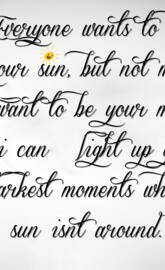 Everyone wants to
our sun, but not m
want to be your m
i can Light up
arkest moments wh
sun isnt around.